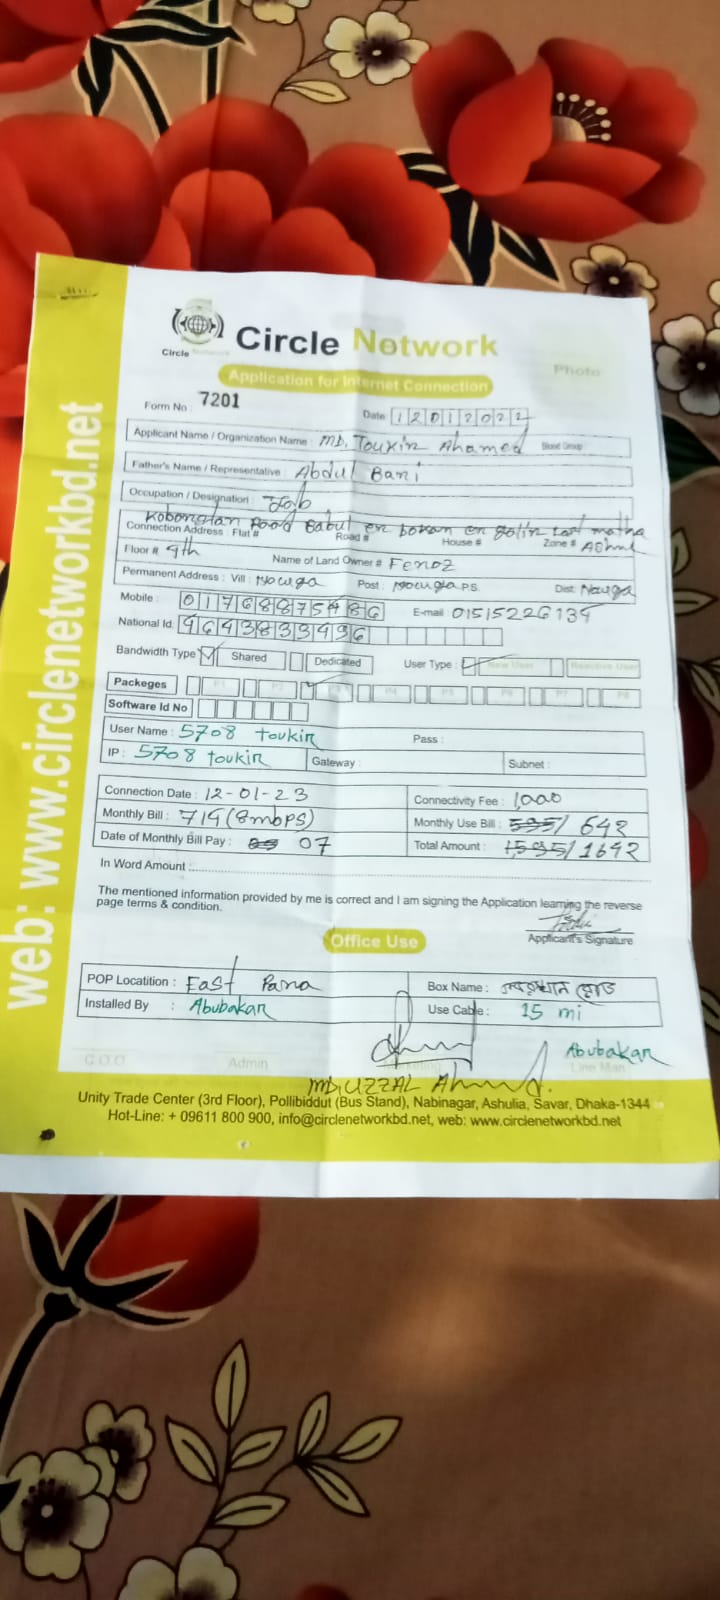 Circle Network
Circle Network
Photo
Application for Internet Connection
Form No : 7201
Date 12012022
Applicant Name / Organization Name : MD, Toukir Ahamed Blood Group :
Father's Name / Representative : Abdul Bari
Occupation / Designation : Job
Road Babul er
Connection Address : Flat # Road # House # Zone #
Floor # 9th Name of Land Owner # Feroz
Permanent Address : Vill : Post : P.S. Dist.
Mobile : E-mail 01515226139
National Id. 9643833496
Bandwidth Type Shared Dedicated User Type : New User Reactive User
Packeges P1 P2 P3 P4 P5 P6 P7 P8
Software Id No
User Name : 5708 toukir Pass :
IP : 5708 toukir Gateway : Subnet :
Connection Date : 12-01-23 Connectivity Fee : 1,000
Monthly Bill : 714 (8mbps) Monthly Use Bill : 595/ 642
Date of Monthly Bill Pay : 07 Total Amount : 1,595/ 1642
In Word Amount :
The mentioned information provided by me is correct and I am signing the Application learning the reverse
page terms & condition.
Applicant's Signature
Office Use
POP Locatition : East Para Box Name :
Installed By : Abubakar Use Cable : 15 mi
Abubakar
C.O.O Admin Marketing Line Man
MD: UZZAL Ahmed.
Unity Trade Center (3rd Floor), Pollibiddut (Bus Stand), Nabinagar, Ashulia, Savar, Dhaka-1344
Hot-Line: + 09611 800 900, info@circlenetworkbd.net, web: www.circlenetworkbd.net
web: www.circlenetworkbd.net